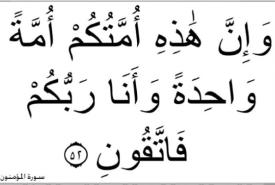 وَإِنَّ هَٰذِهِ أُمَّتُكُمْ أُمَّةً
وَاحِدَةً وَأَنَا رَبُّكُمْ
فَاتَّقُونِ ﴿٥٢﴾
سورة المؤمنون